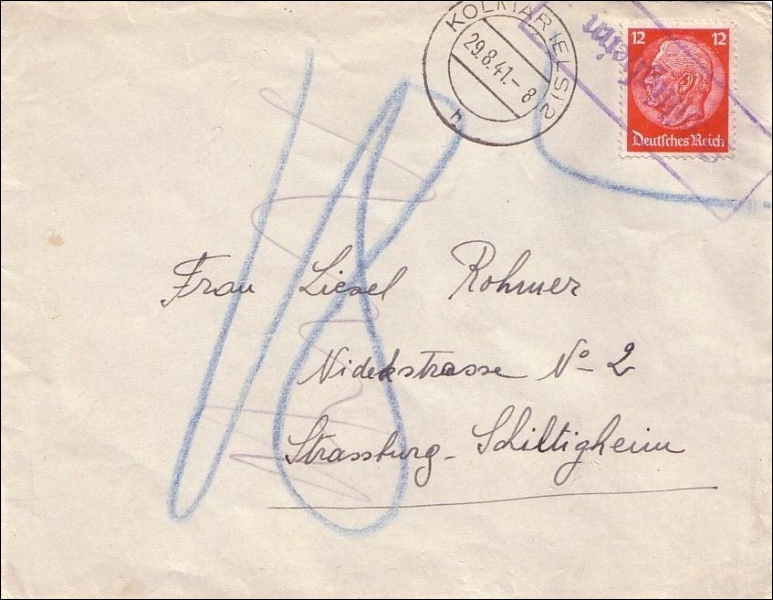 KOLMAR (ELS) 2
29.8.41.-8
h
12 12
Deutsches Reich
18
Frau Liesel Rohmer
Nidekstrasse No 2
Strassburg-Schiltigheim